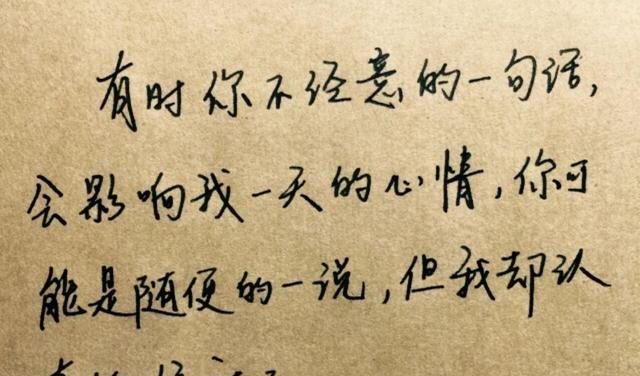 有时你不经意的一句话，
会影响我一天的心情，你可
能是随便的一说，但我却认